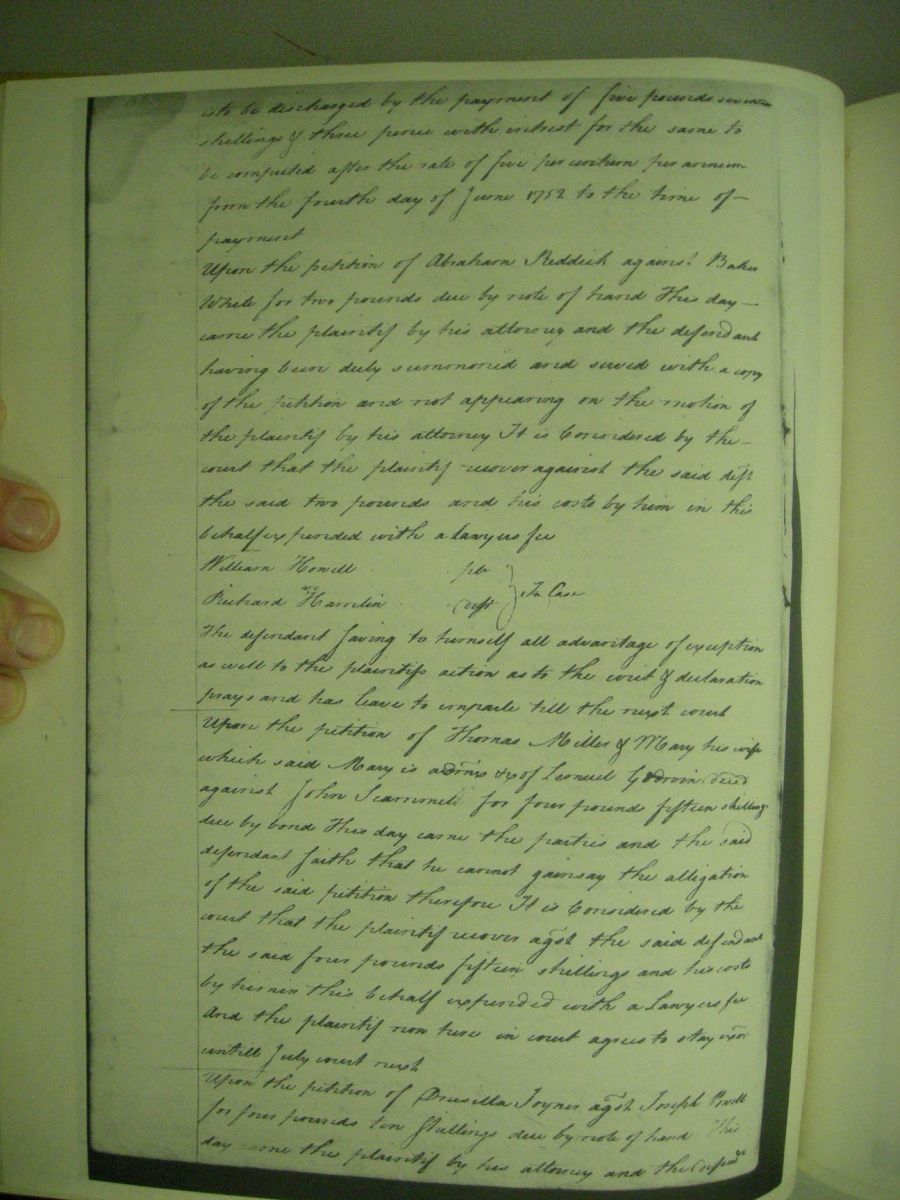 is to be discharged by the payment of five pounds seven
shillings & three pence with intrest for the same to
be computed after the rate of five per centum per annum
from the fourth day of June 1752 to the time of—
payment
Upon the petition of Abraham Reddick against Baker
White for two pounds due by note of hand This day—
came the plaintif by his attorney and the defendant
having been duly summonied and served with a copy
of the petition and not appearing on the motion of
the plaintif by his attorney It is Considered by the—
court that the plaintif recover against the said deft
the said two pounds and his costs by him in this
behalf expended with a lawyers fee
William Howell plt
Richard Hamlin deft } In Case
The defendant saving to himself all advantage of exception
as well to the plaintifs action as to the writ & declaration
prays and has leave to imparle till the next court
Upon the petition of Thomas Miller & Mary his wife
which said Mary is admx &c of Lemuel Godwin deced
against John Scammell for four pounds fifteen shillings
due by bond This day came the parties and the said
defendant saith that he cannot gainsay the alligation
of the said petition therefore It is Considered by the
court that the plaintif recover agst the said defendant
the said four pounds fifteen shillings and his costs
by him in this behalf expended with a lawyers fee
And the plaintif now here in court agrees to stay exon
untill July court next
Upon the petition of Druscilla Joyner agst Joseph Powell
for four pounds ten shillings due by note of hand This
day came the plaintif by his attorney and the defendt